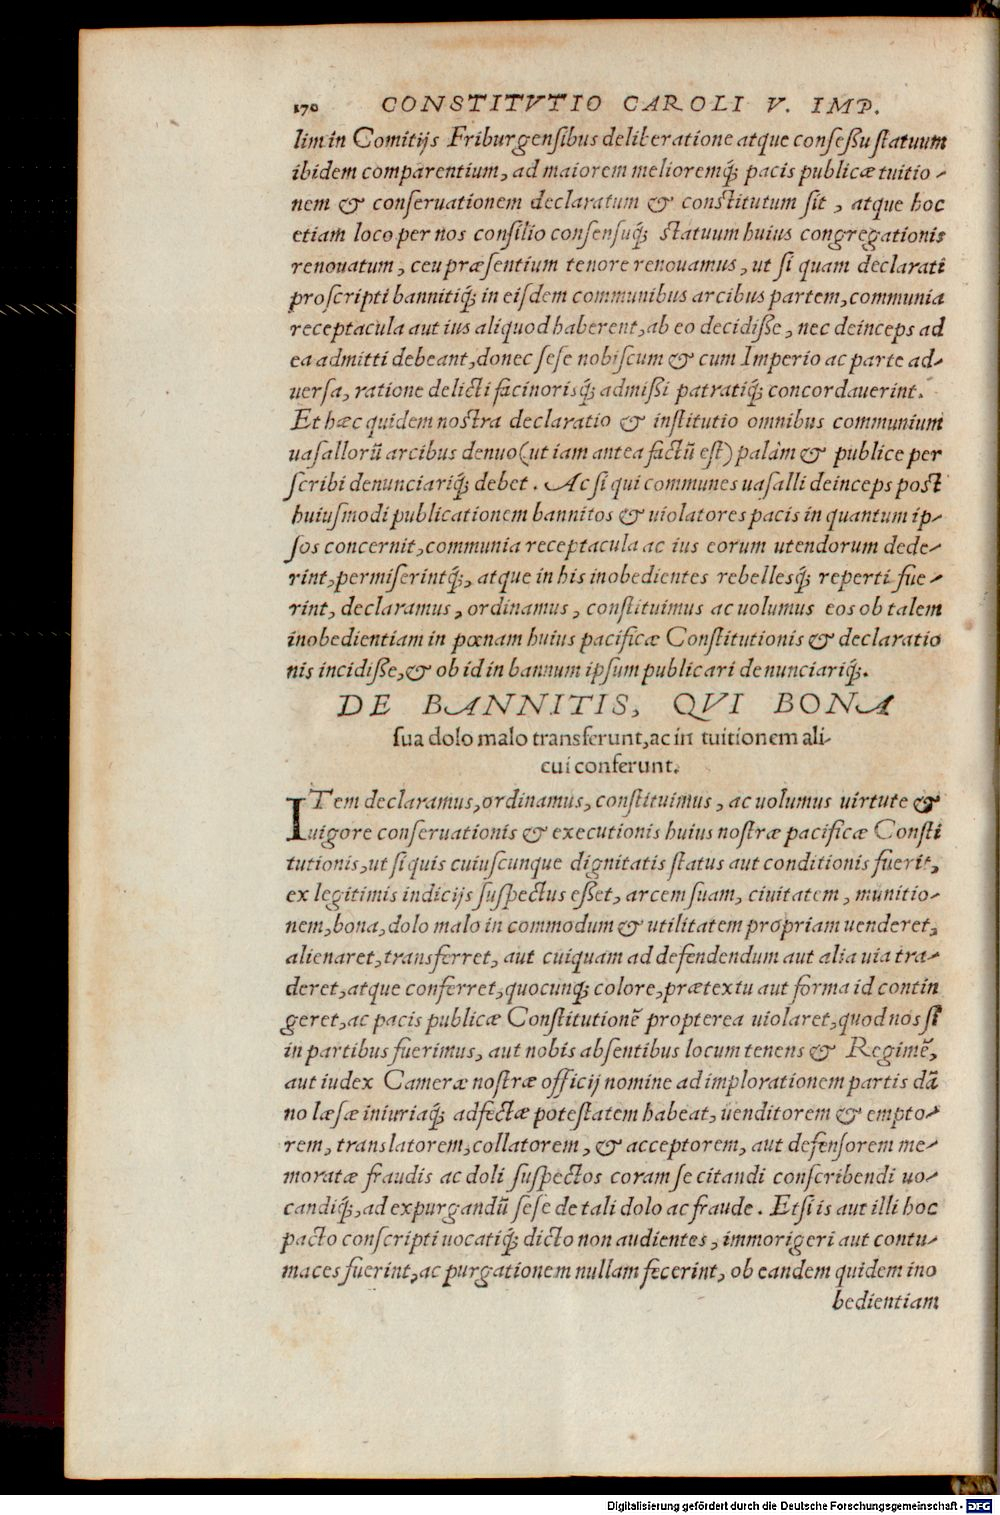 170 CONSTITVTIO CAROLI V. IMP.
lim in Comitijs Friburgensibus deliberatione atque consessu statuum
ibidem comparentium, ad maiorem melioremq́; pacis publicæ tuitio-
nem & conseruationem declaratum & constitutum sit, atque hoc
etiam loco per nos consilio consensuq́; statuum huius congregationis
renouatum, ceu præsentium tenore renouamus, ut si quam declarati
proscripti bannitiq́; in eisdem communibus arcibus partem, communia
receptacula aut ius aliquod haberent, ab eo decidisse, nec deinceps ad
ea admitti debeant, donec sese nobiscum & cum Imperio ac parte ad-
uersa, ratione delicti facinorisq́; admissi patratiq́; concordauerint.
Et hæc quidem nostra declaratio & institutio omnibus communium
uasallorū arcibus denuo (ut iam antea factū est) palàm & publice per
scribi denunciariq́; debet. Ac si qui communes uasalli deinceps post
huiusmodi publicationem bannitos & uiolatores pacis in quantum ip-
sos concernit, communia receptacula ac ius eorum utendorum dede-
rint, permiserintq́;, atque in his inobedientes rebellesq́; reperti fue-
rint, declaramus, ordinamus, constituimus ac uolumus eos ob talem
inobedientiam in pœnam huius pacificæ Constitutionis & declaratio
nis incidisse, & ob id in bannum ipsum publicari denunciariq́;.
DE BANNITIS, QVI BONA
sua dolo malo transferunt, ac in tuitionem ali-
cui conferunt.
ITem declaramus, ordinamus, constituimus, ac uolumus uirtute &
uigore conseruationis & executionis huius nostræ pacificæ Consti
tutionis, ut si quis cuiuscunque dignitatis status aut conditionis fuerit,
ex legitimis indicijs suspectus esset, arcem suam, ciuitatem, munitio-
nem, bona, dolo malo in commodum & utilitatem propriam uenderet,
alienaret, transferret, aut cuiquam ad defendendum aut alia uia tra-
deret, atque conferret, quocunq; colore, prætextu aut forma id contin
geret, ac pacis publicæ Constitutionē propterea uiolaret, quod nos si
in partibus fuerimus, aut nobis absentibus locum tenens & Regimē,
aut iudex Cameræ nostræ officij nomine ad implorationem partis dā
no læsæ iniuriaq́; adfectæ potestatem habeat, uenditorem & empto-
rem, translatorem, collatorem, & acceptorem, aut defensorem me-
moratæ fraudis ac doli suspectos coram se citandi conscribendi uo-
candiq́;, ad expurgandū sese de tali dolo ac fraude. Et si is aut illi hoc
pacto conscripti uocatiq́; dicto non audientes, immorigeri aut contu-
maces fuerint, ac purgationem nullam fecerint, ob eandem quidem ino
bedientiam
Digitalisierung gefördert durch die Deutsche Forschungsgemeinschaft - DFG